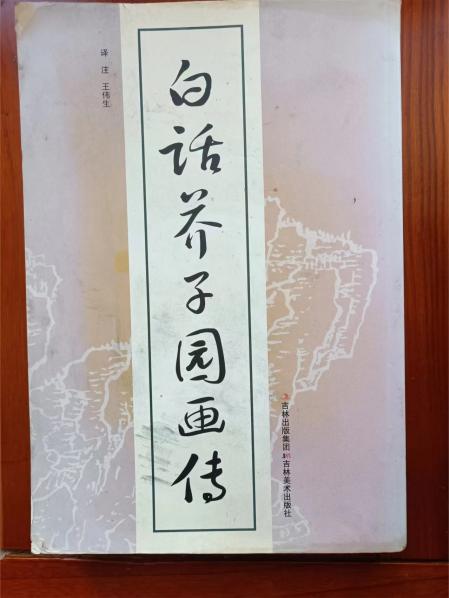 译注 王伟生
白话芥子园画传
吉林出版集团
吉林美术出版社